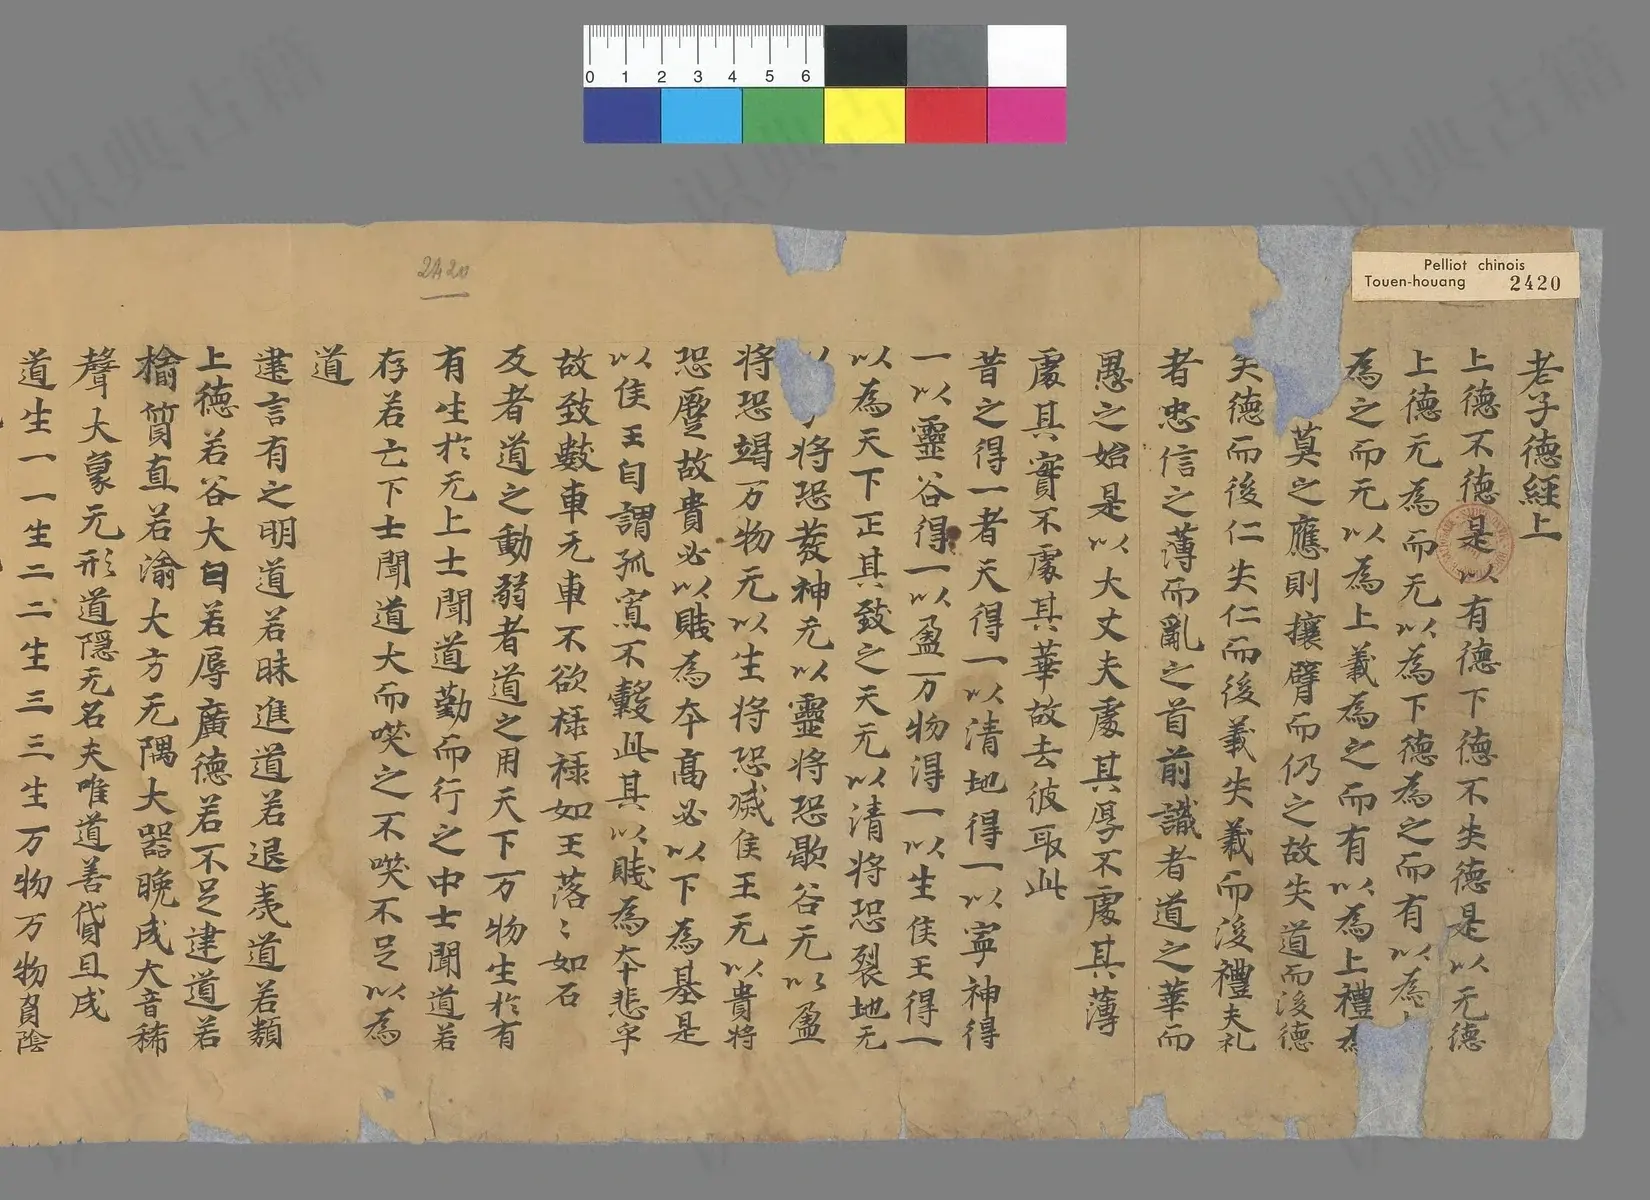 Pelliot chinois
Touen-houang 2420
2420
0 1 2 3 4 5 6
老子德經上
上德不德是以有德下德不失德是以无德
上德无為而无以為下德為之而有以為
為之而无以為上義為之而有以為上禮為
莫之應則攘臂而仍之故失道而後德
失德而後仁失仁而後義失義而後禮夫礼
者忠信之薄而亂之首前識者道之華而
愚之始是以大丈夫處其厚不處其薄
處其實不處其華故去彼取此
昔之得一者天得一以清地得一以寧神得
一以靈谷得一以盈万物得一以生侯王得一
以為天下正其致之天无以清將恐裂地无
將恐發神无以靈將恐歇谷无以盈
將恐竭万物无以生將恐滅侯王无以貴將
恐蹷故貴必以賤為本高必以下為基是
以侯王自謂孤寡不轂此其以賤為本悲乎
故致數車无車不欲祿祿如玉落〻如石
反者道之動弱者道之用天下万物生於有
有生於无上士聞道勤而行之中士聞道若
存若亡下士聞道大而唉之不唉不足以為
道
建言有之明道若昧進道若退夷道若類
上德若谷大白若辱廣德若不足建道若
揄質直若渝大方无隅大器晚成大音稀
聲大象无形道隱无名夫唯道善貸且成
道生一一生二二生三三生万物万物負陰